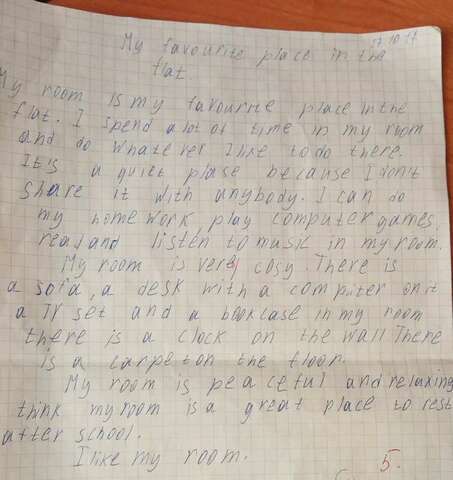 17.10.17
My favourite place in the
flat.
My room is my favourite place in the
flat. I spend a lot of time in my room
and do whatever I like to do there.
It's a quiet plase because I don't
share it with anybody. I can do
my homework, play computer games,
read and listen to music in my room.
My room is very cosy. There is
a sofa, a desk with a computer on it
a TV set and a bookcase in my room
there is a clock on the wall There
is a carpet on the floor.
My room is peaceful and relaxing
think my room is a great place to rest
after school.
I like my room.
5.